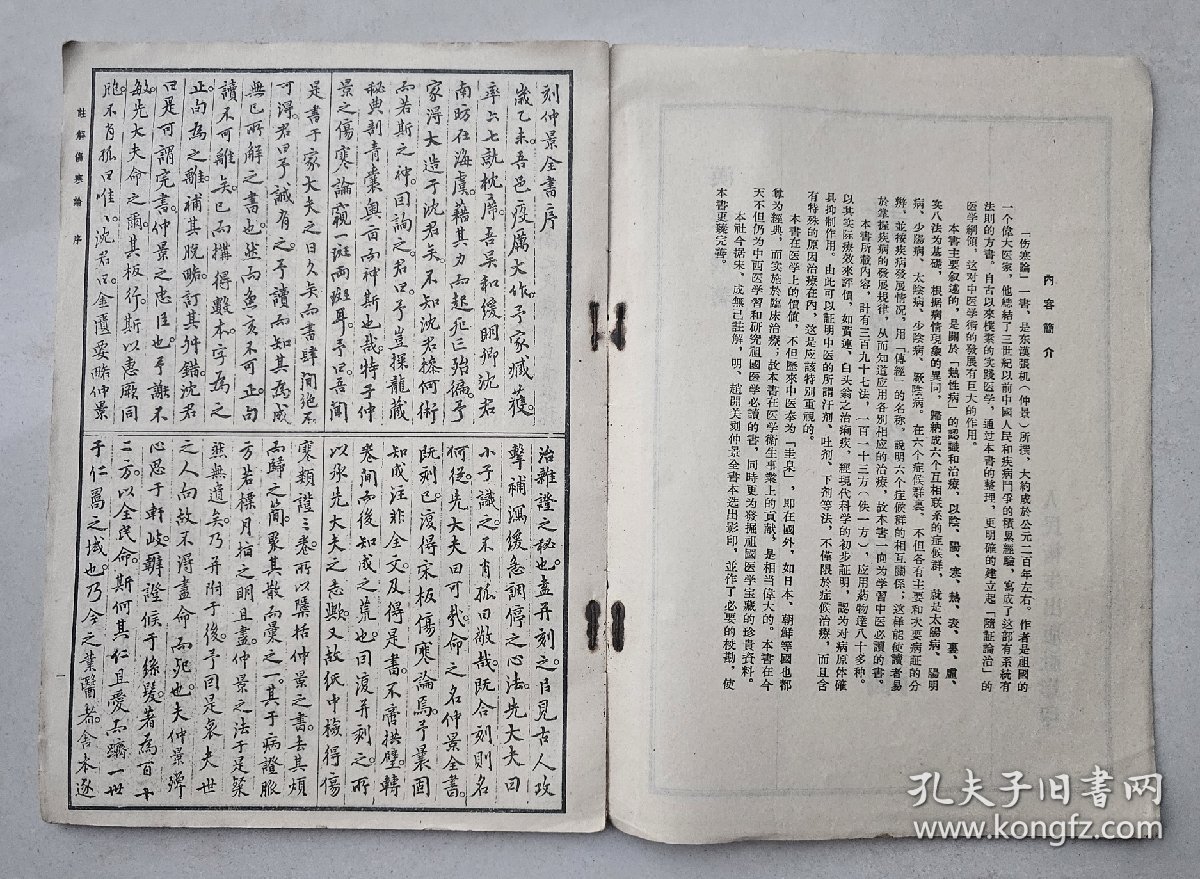 內容簡介
「伤寒論」一書，是东漢張机（仲景）所撰，大約成於公元二百年左右。作者是祖國的
一个偉大医家，他總結了三世紀以前中國人民和疾病鬥爭的積累經驗，寫成了这部有系統有
法則的方書。自古以來樸素的实踐医学，通过本書的整理，更明確的建立起「隨証論治」的
医学綱領，这对中医学術的發展有巨大的作用。
本書主要叙述的，是關於「熱性病」的認識和治療，以陰、陽、寒、熱、表、裏、虛、
实八法为基礎，根据病情現象的異同，歸納成六个互相联系的症候群，就是太陽病、陽明
病、少陽病、太陰病、少陰病、厥陰病。在六个症候群裏，不但各有主要和次要病証的分
辨，並按疾病發展情况，用「傳經」的名称，說明六个症候群的相互關係；这样能使讀者易
於掌握疾病的發展規律，从而知道应用各別相应的治療，故本書一向为学習中医必讀的書。
本書所載內容，計有三百九十七法，一百一十三方（佚一方）应用药物達八十多种。
以其实际療效來評價，如黃連、白头翁之治痢疾，經現代科学的初步証明，認为对病原体確
具抑制作用。由此可以証明中医的所謂汗剂、吐剂、下剂等法，不僅限於症候治療，而且含
有特殊的原因治療在內，这是应該特別重視的。
本書在医学上的價值，不但歷來中医奉为「圭臬」，即在國外，如日本、朝鮮等國也都
奪为經典，而实施於臨床治療；故本書在医学衞生事業上的貢献，是相当偉大的。本書在今
天不但仍为中西医学習和研究祖國医学必讀的書，同時更为發掘祖國医学宝藏的珍貴資料。
本社今据宋、成無已註解，明、趙開美刻仲景全書本选出影印，並作了必要的校勘，使
本書更臻完善。
刻仲景全書序
歲乙未吾邑疫厲大作予家臧獲
率六七就枕席吾吳和緩明卿沈君
南昉在海虞藉其力而起死亡殆徧予
家得大造于沈君矣不知沈君操何術
而若斯之神因詢之君曰予豈探龍藏
秘典剖青囊奧旨而神斯也哉特于仲
景之傷寒論窺一斑兩斑耳予曰吾聞
是書于家大夫之日久矣而書肆間絕不
可得君曰予誠有之予讀而知其為成
無已所解之書也然而魚亥不可正句
讀不可離矣已而搆得數本字為之
正句為之離補其脫畧訂其舛錯沈君
曰是可謂完書仲景之忠臣也予謝不
敏先大夫命之爾其板行斯以惠厥同
胞不肖孤曰唯〻沈君曰金匱要略仲景
治雜證之秘也盍并刻之以見古人攻
擊補瀉緩急調停之心法先大夫曰
小子識之不肖孤曰敬哉既合刻則名
何從先大夫曰可哉命之名仲景全書
既刻已復得宋板傷寒論焉予曩固
知成注非全文及得是書不啻拱璧轉
卷間而後知成之荒也因復并刻之所
以承先大夫之志歟又故紙中檢得傷
寒類證三卷所以檃括仲景之書去其煩
而歸之簡聚其散而彙之一其于病證脈
方若標月指之明且盡仲景之法于是粲
然無遺矣乃并附于後予因是哀夫世
之人向故不得盡命而死也夫仲景殫
心思于軒岐辨證候于絲髮著為百十
二方以全民命斯何其仁且愛而躋一世
于仁壽之域也乃今之業醫者舍本逐
註解傷寒論 序
孔夫子旧书网
www.kongfz.com